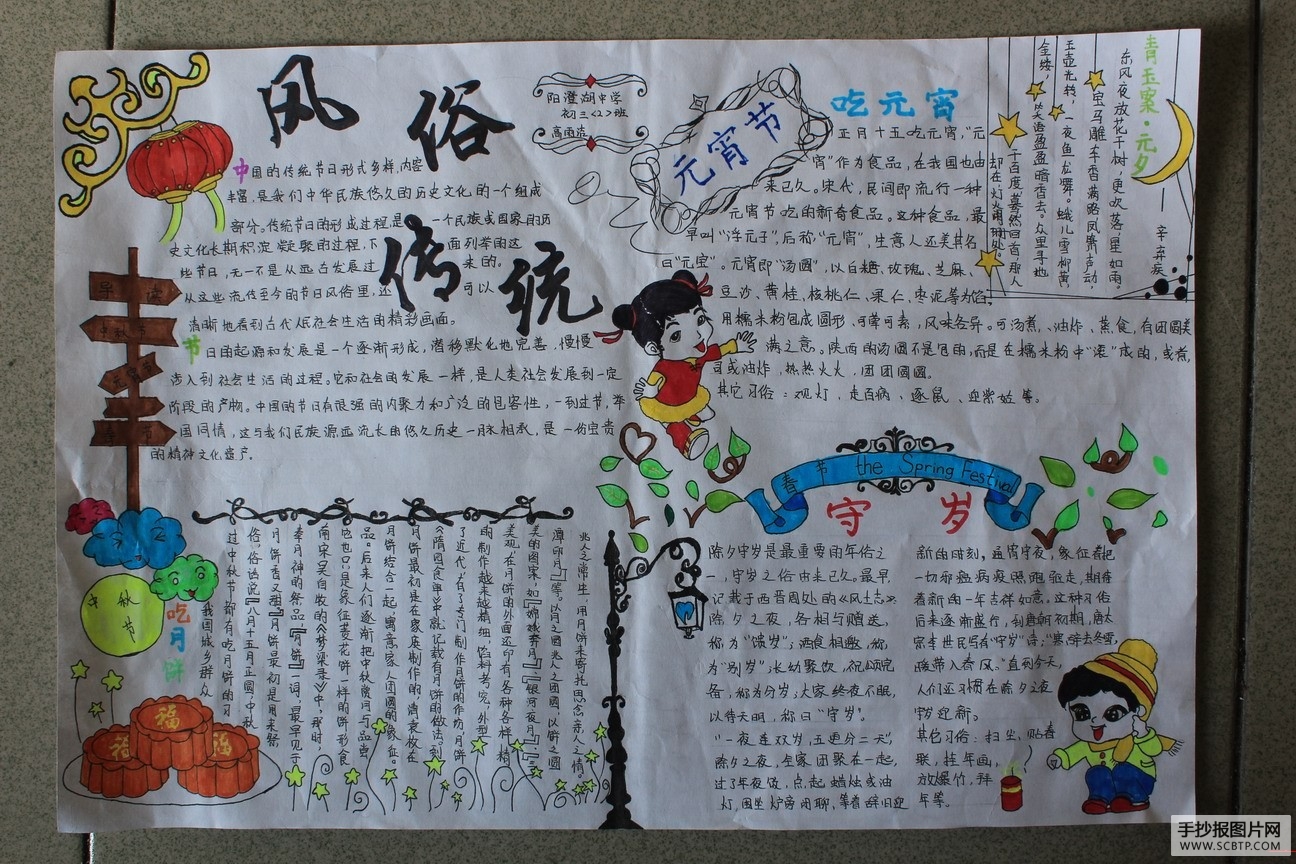 风俗
传统
阳澄湖中学
初三<2>班
中国的传统节日形式多样,内容
丰富,是我们中华民族悠久的历史文化的一个组成
部分。传统节日的形成过程,是一个民族或国家的历
史文化长期积淀凝聚的过程,下面列举的这
些节日,无一不是从远古发展过来的。
从这些流传至今的节日风俗里,还可以
清晰地看到古代人民社会生活的精彩画面。
节日的起源和发展是一个逐渐形成,潜移默化地完善,慢慢
涉入到社会生活的过程。它和社会的发展一样,是人类社会发展到一定
阶段的产物。中国的节日有很强的内聚力和广泛的包容性,一到过节,举
国同情,这与我们民族源远流长的悠久历史一脉相承,是一份宝贵
的精神文化遗产。
导读
中秋节
元宵节
春节
元宵节
吃元宵
正月十五吃元宵,"元
宵"作为食品,在我国也由
来已久。宋代,民间即流行一种
元宵节吃的新奇食品。这种食品,最
早叫"浮元子",后称"元宵",生意人还美其名
曰"元宝"。元宵即"汤圆",以白糖、玫瑰、芝麻、
豆沙、黄桂、核桃仁、果仁、枣泥等为馅,
用糯米粉包成圆形、可荤可素,风味各异。可汤煮、油炸、蒸食,有团圆美
满之意。陕西的汤圆不是包的,而是在糯米粉中"滚"成的,或煮
司或油炸,热热火火,团团圆圆。
其它习俗:观灯、走百病、逐鼠、迎紫姑等。
青玉案·元夕
辛弃疾
东风夜放花千树,更吹落,星如雨。
宝马雕车香满路,凤箫声动,
玉壶光转,一夜鱼龙舞。蛾儿雪柳黄
金缕,笑语盈盈暗香去。众里寻他
千百度,蓦然回首,那人
却在,灯火阑珊处。
中秋节
吃月饼
我国城乡群众
过中秋节都有吃月饼的习
俗,俗话说:『八月十五月正圆,中秋
月饼香又甜』。月饼最初是用来祭
奉月神的祭品,『月饼』一词,最早见于
南宋吴自牧的《梦梁录》中,那时,
它也只是象征菱花饼一样的饼形食
品。后来人们逐渐把中秋赏月与品尝
月饼结合一起,寓意家人团圆的象征。
月饼最初是在家庭制作的,清袁枚在
《隋园食单》中就记载有月饼的做法。到
了近代,有了专门制作月饼的作坊,月饼
的制作越来越精细,馅料考究,外型
美观,在月饼的外面还印有各种各样精
美的图案,如『嫦娥奔月』、『银河夜月』、『三
潭印月』等。以月之圆兆人之团圆,以饼之圆
兆人之常生,用月饼来寄托思念亲人之情。
春节 the Spring Festival
守岁
除夕守岁是最重要的年俗之
一,守岁之俗由来已久。最早
记载于西晋周处的《风土志》:
除夕之夜,各相与赠送,
称为"馈岁";酒食相邀,称
为"别岁";长幼聚饮,祝颂完
备,称为分岁;大家终夜不眠,
以待天明,称曰"守岁"。
"一夜连双岁,五更分二天",
除夕之夜,全家团聚在一起,
过了年夜饭,点起蜡烛或油
灯,围坐炉旁闲聊,等着辞旧迎
新的时刻,通宵守夜,象征着把
一切邪瘟病疫照跑驱走,期待
着新的一年吉祥如意。这种习俗
后来逐渐盛行,到唐朝初期,唐太
宗李世民写有"守岁"诗:"寒辞去冬雪,
暖带入春风。"直到今天,
人们还习惯在除夕之夜
守岁迎新。
其它习俗:扫尘,贴春
联,挂年画,
放爆竹,拜
年等。
福
福
福
手抄报图片网
WWW.SCBTP.COM